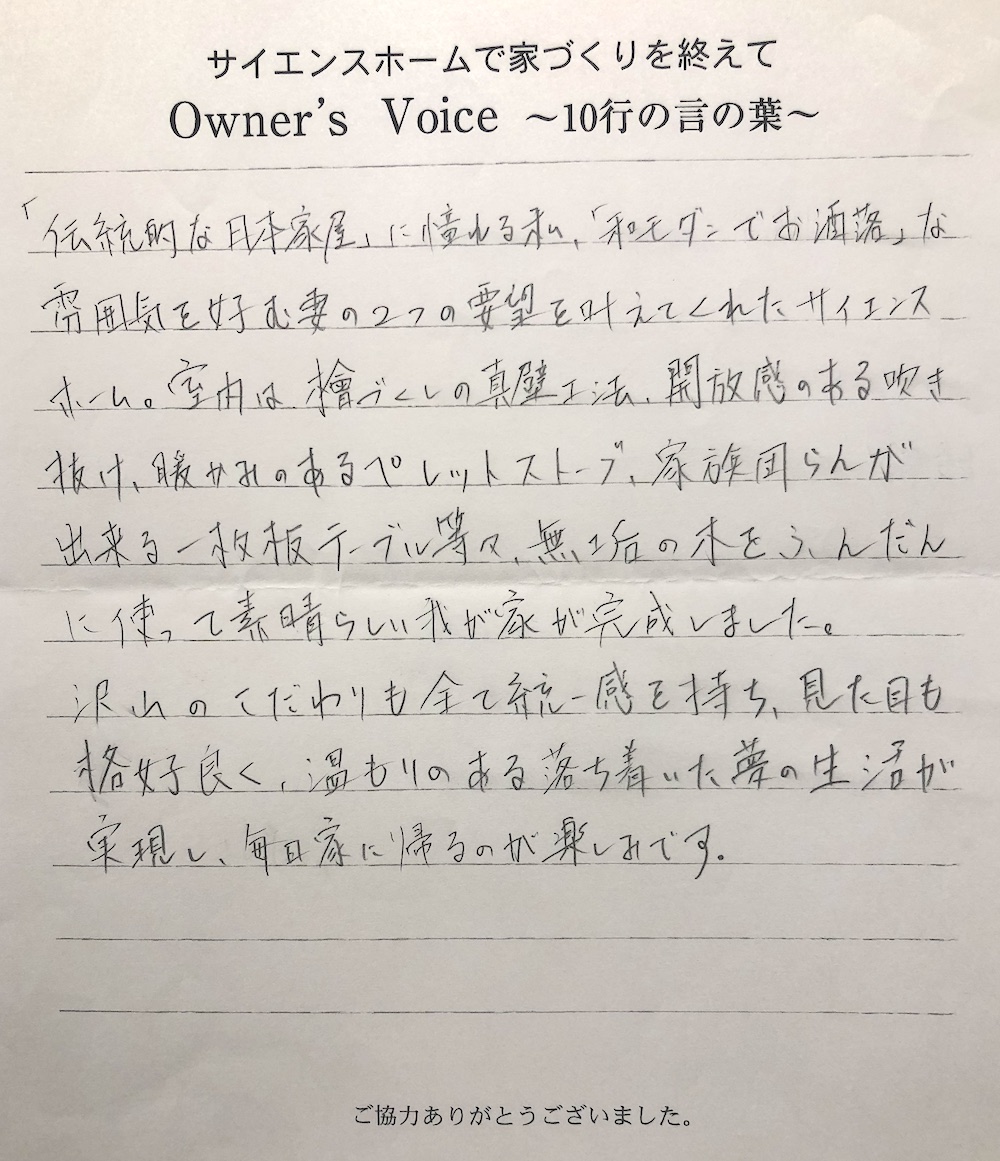 サイエンスホームで家づくりを終えて
Owner's Voice ～10行の言の葉～
「伝統的な日本家屋」に憧れる私、「和モダンでお洒落」な
雰囲気を好む妻の2つの要望を叶えてくれたサイエンス
ホーム。室内は檜づくしの真壁工法、開放感のある吹き
抜け、暖かみのあるペレットストーブ、家族団らんが
出来る一枚板テーブル等々、無垢の木をふんだん
に使って素晴らしい我が家が完成しました。
沢山のこだわりも全て統一感を持ち、見た目も
格好良く、温もりのある落ち着いた夢の生活が
実現し、毎日家に帰るのが楽しみです。
ご協力ありがとうございました。